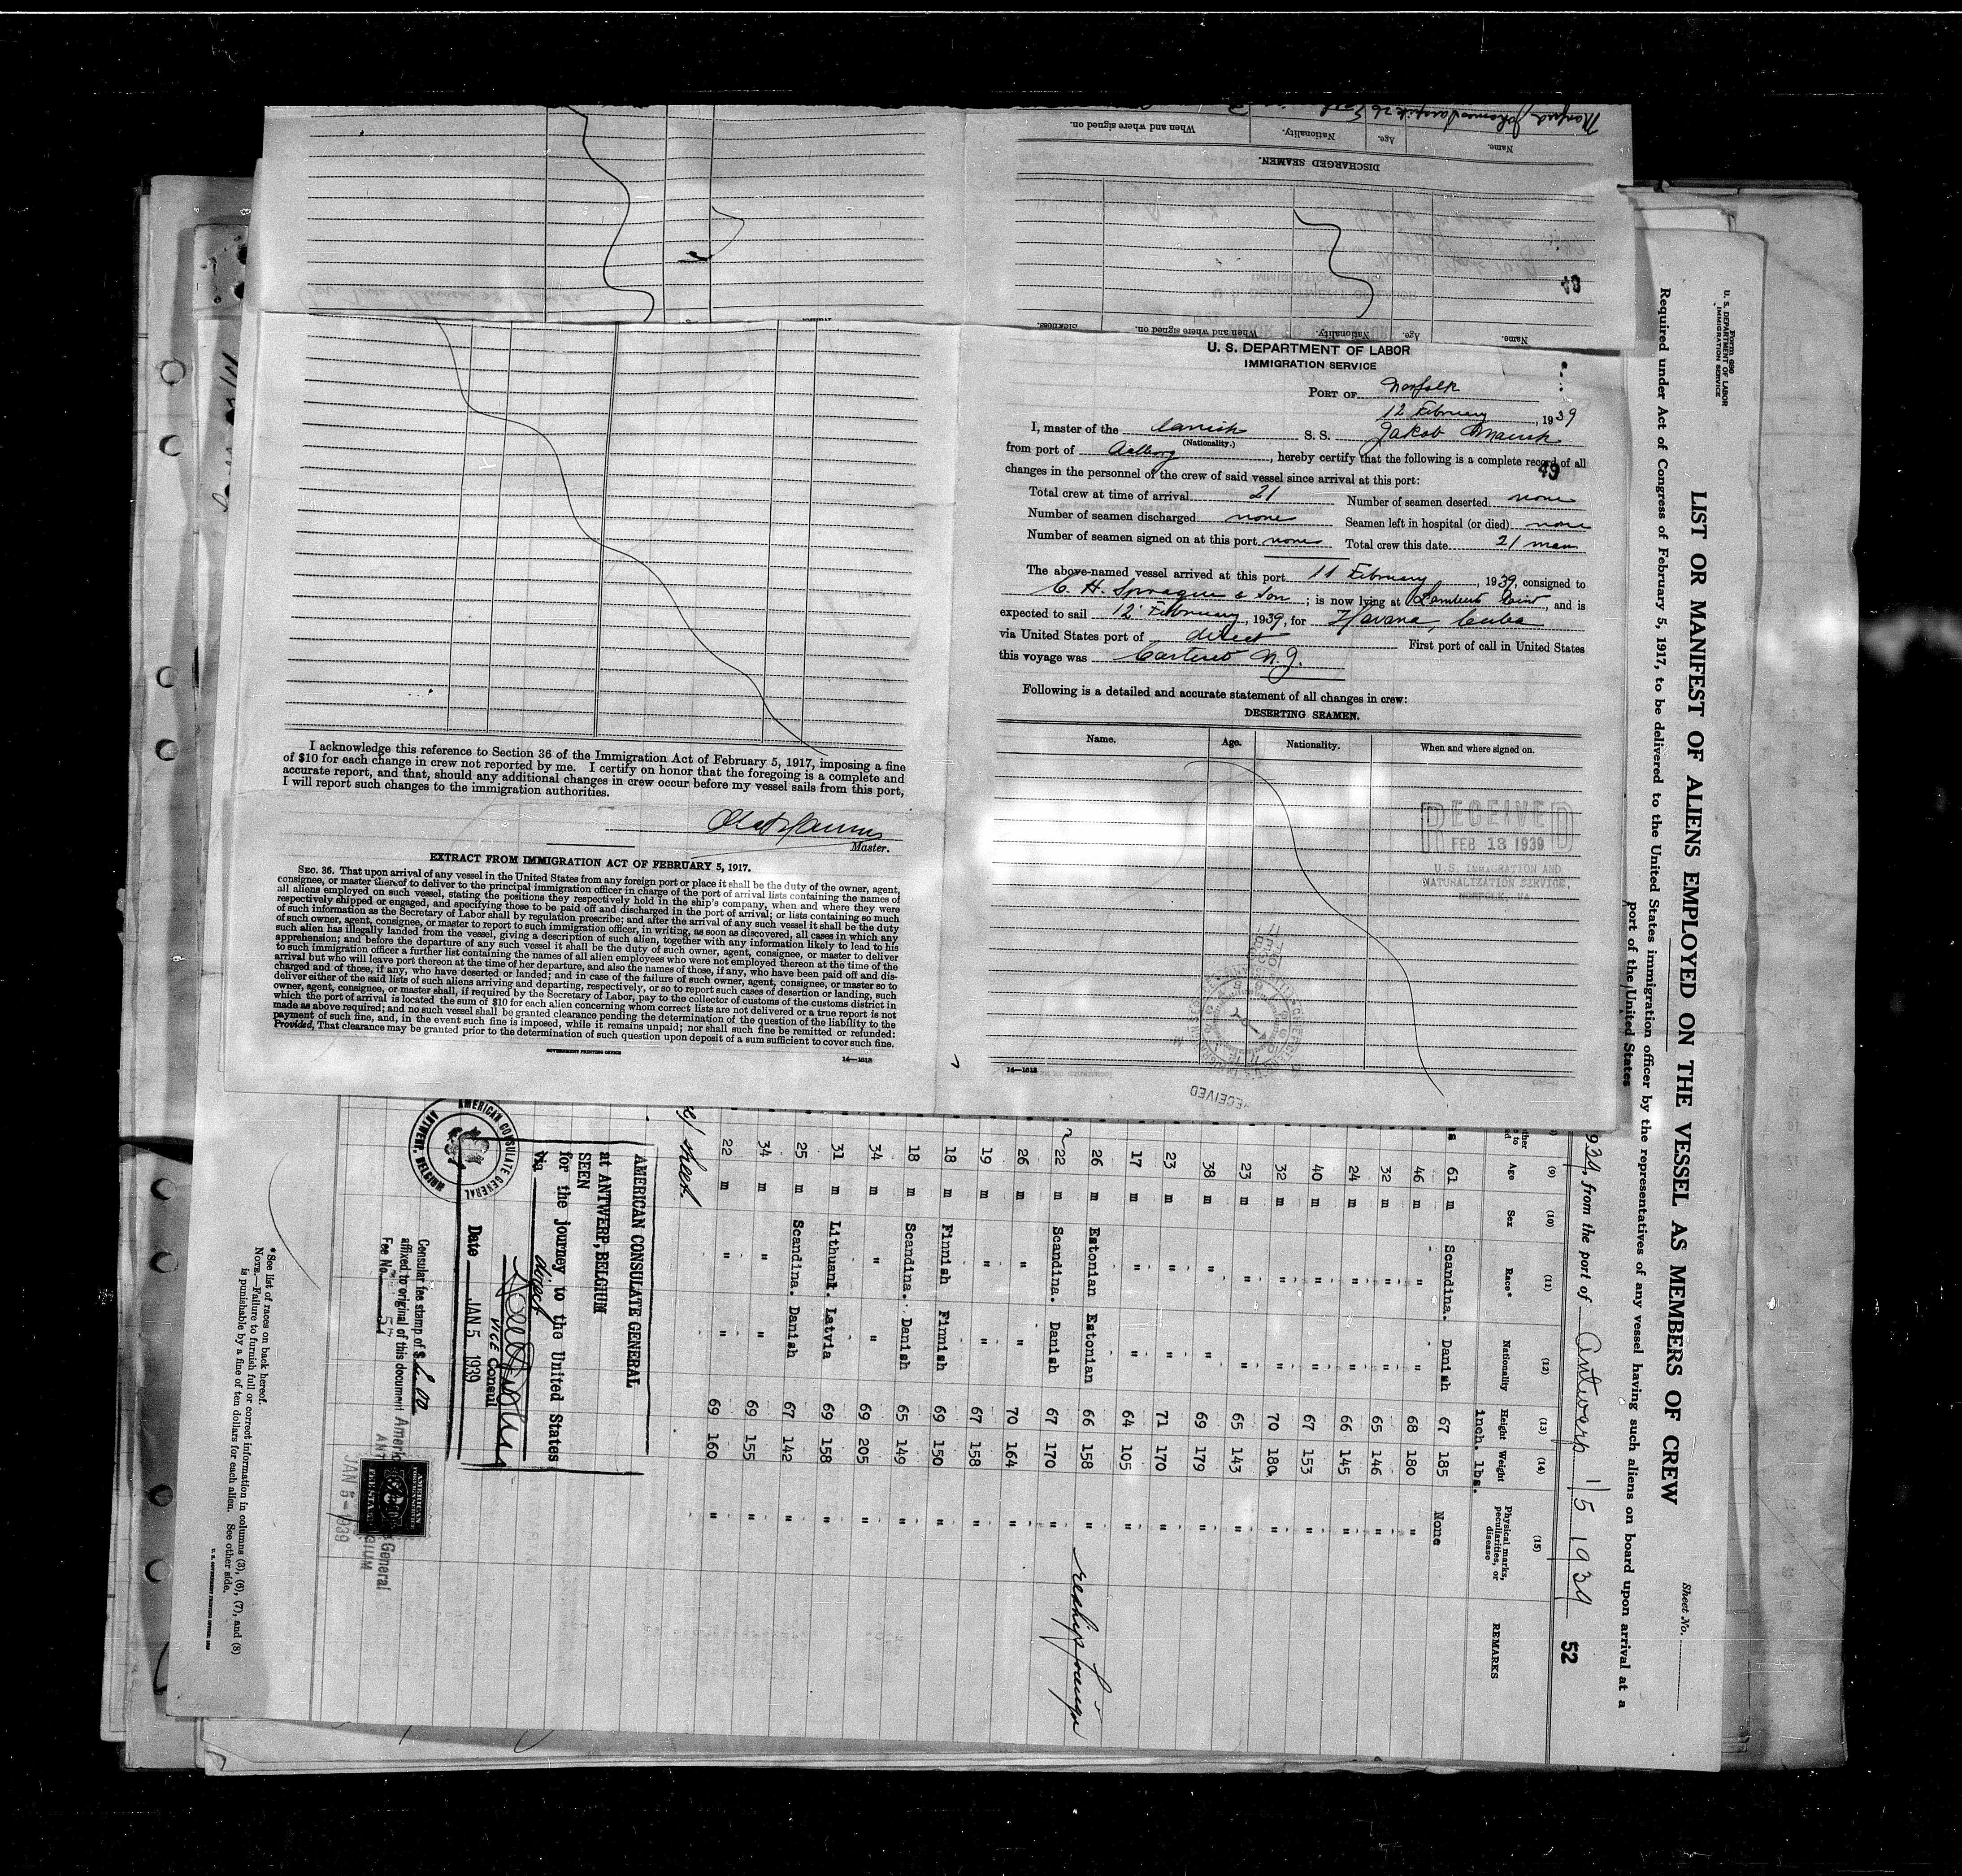 U. S. DEPARTMENT OF LABOR
IMMIGRATION SERVICE
PORT OF Norfolk
12 February, 1939
I, master of the Danish S. S. Jakob Maersk
(Nationality.)
from port of Aalborg, hereby certify that the following is a complete record of all
49
changes in the personnel of the crew of said vessel since arrival at this port:
Total crew at time of arrival 21 Number of seamen deserted none
Number of seamen discharged none Seamen left in hospital (or died) none
Number of seamen signed on at this port none Total crew this date 21 men
The above-named vessel arrived at this port 11 February, 1939, consigned to
C. H. Sprague & Son; is now lying at Lamberts Point, and is
expected to sail 12 February, 1939, for Havana, Cuba
via United States port of direct First port of call in United States
this voyage was Carteret N. J.
Following is a detailed and accurate statement of all changes in crew:
DESERTING SEAMEN.
Name. Age. Nationality. When and where signed on.
RECEIVED
FEB 13 1939
U. S. IMMIGRATION AND
NATURALIZATION SERVICE,
NORFOLK, VA
RECEIVED
14—1618
DISCHARGED SEAMEN.
Name. Age. Nationality. When and where signed on.
49
Name. Age. Nationality. When and where signed on. Sickness.
I acknowledge this reference to Section 36 of the Immigration Act of February 5, 1917, imposing a fine
of $10 for each change in crew not reported by me. I certify on honor that the foregoing is a complete and
accurate report, and that, should any additional changes in crew occur before my vessel sails from this port,
I will report such changes to the immigration authorities.
Master.
EXTRACT FROM IMMIGRATION ACT OF FEBRUARY 5, 1917.
SEC. 36. That upon arrival of any vessel in the United States from any foreign port or place it shall be the duty of the owner, agent,
consignee, or master thereof to deliver to the principal immigration officer in charge of the port of arrival lists containing the names of
all aliens employed on such vessel, stating the positions they respectively hold in the ship's company, when and where they were
respectively shipped or engaged, and specifying those to be paid off and discharged in the port of arrival; or lists containing so much
of such information as the Secretary of Labor shall by regulation prescribe; and after the arrival of any such vessel it shall be the duty
of such owner, agent, consignee, or master to report to such immigration officer, in writing, as soon as discovered, all cases in which any
such alien has illegally landed from the vessel, giving a description of such alien, together with any information likely to lead to his
apprehension; and before the departure of any such vessel it shall be the duty of such owner, agent, consignee, or master to deliver
to such immigration officer a further list containing the names of all alien employees who were not employed thereon at the time of the
arrival but who will leave port thereon at the time of her departure, and also the names of those, if any, who have been paid off and dis-
charged and of those, if any, who have deserted or landed; and in case of the failure of such owner, agent, consignee, or master so to
deliver either of the said lists of such aliens arriving and departing, respectively, or so to report such cases of desertion or landing, such
owner, agent, consignee, or master shall, if required by the Secretary of Labor, pay to the collector of customs of the customs district in
which the port of arrival is located the sum of $10 for each alien concerning whom correct lists are not delivered or a true report is not
made as above required; and no such vessel shall be granted clearance pending the determination of the question of the liability to the
payment of such fine, and, in the event such fine is imposed, while it remains unpaid; nor shall such fine be remitted or refunded:
Provided, That clearance may be granted prior to the determination of such question upon deposit of a sum sufficient to cover such fine.
GOVERNMENT PRINTING OFFICE 14—1618
Form 680
U. S. DEPARTMENT OF LABOR
IMMIGRATION SERVICE
LIST OR MANIFEST OF ALIENS EMPLOYED ON THE VESSEL AS MEMBERS OF CREW
Sheet No.
Required under Act of Congress of February 5, 1917, to be delivered to the United States immigration officer by the representatives of any vessel having such aliens on board upon arrival at a
port of the United States
939, from the port of Antwerp 1/5 1939 52
(9) (10) (11) (12) (13) (14) (15)
Age Sex Race* Nationality Height Weight Physical marks, peculiarities, or disease REMARKS
inch. lbs.
61 m Scandina. Danish 67 185 None
46 m " " 68 180 "
32 m " " 65 146 "
24 m " " 66 145 "
40 m " " 67 153 "
32 m " " 70 180 "
23 m " " 65 143 "
38 m " " 69 179 "
23 m " " 71 170 "
17 m " " 64 105 "
26 m Estonian Estonian 66 158 "
22 m Scandina. Danish 67 170 " reship foreign
26 m " " 70 164 "
19 m " " 67 158 "
18 m Finnish Finnish 69 150 "
18 m Scandina. Danish 65 149 "
34 m " " 69 205 "
31 m Lithuani. Latvia 69 158 "
25 m Scandina. Danish 67 142 "
34 m " " 69 155 "
22 m " " 69 160 "
sheet.
AMERICAN CONSULATE GENERAL
at ANTWERP, BELGIUM
SEEN
for the journey to the United States
via direct
Vice Consul
Date JAN 5 1939
AMERICAN CONSULATE GENERAL
ANTWERP, BELGIUM
Consular fee stamp of $
affixed to original of this document
Fee No. 57
AMERICAN
FOREIGN SERVICE
FEE STAMP
JAN 5 - 1939
* See list of races on back hereof.
NOTE.—Failure to furnish full or correct information in columns (3), (6), (7), and (8)
is punishable by a fine of ten dollars for each alien. See other side.